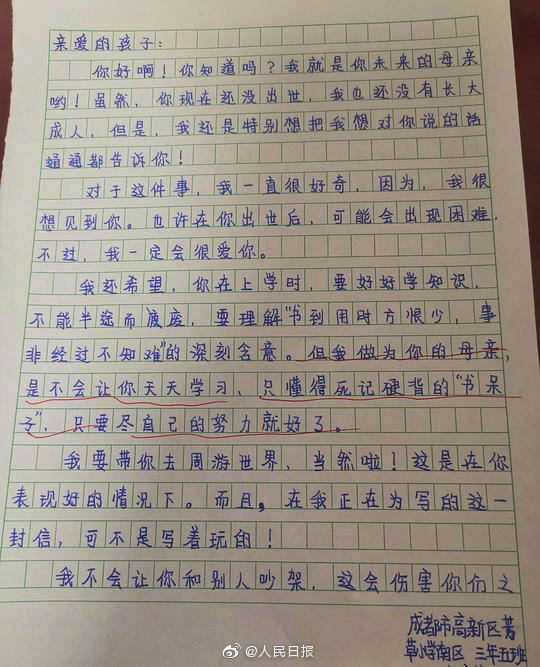 亲爱的孩子:
你好啊!你知道吗?我就是你未来的母亲
哟!虽然,你现在还没出世,我也还没有长大
成人,但是,我还是特别想把我想对你说的话
通通都告诉你!
对于这件事,我一直很好奇,因为,我很
想见到你。也许在你出世后,可能会出现困难,
不过,我一定会很爱你。
我还希望,你在上学时,要好好学知识,
不能半途而废,要理解“书到用时方恨少,事
非经过不知难”的深刻含意。但我做为你的母亲,
是不会让你天天学习,只懂得死记硬背的“书呆
子”,只要尽自己的努力就好了。
我要带你去周游世界,当然啦!这是在你
表现好的情况下。而且,在我正在为写的这一
封信,可不是写着玩的!
我不会让你和别人吵架,这会伤害你们之
成都市高新区菁
草小学南区 三年五班
@人民日报